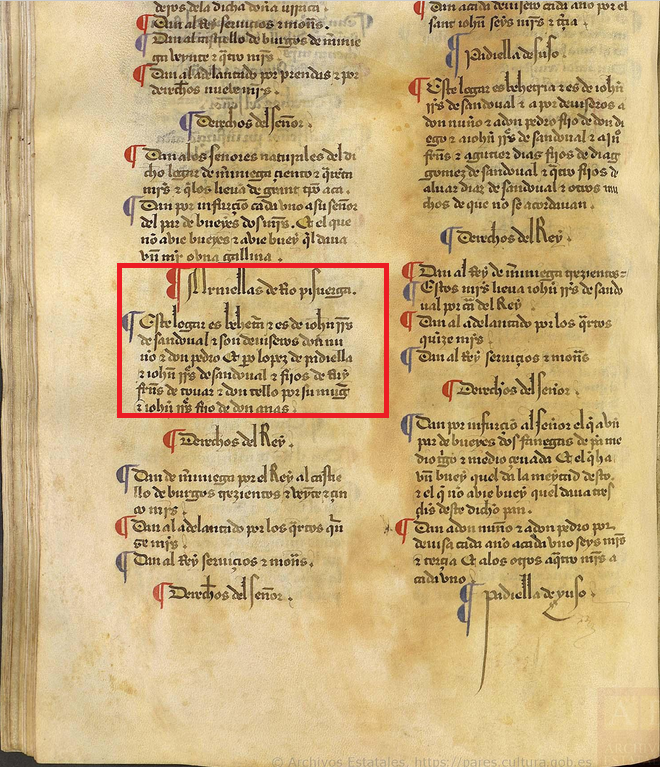 deros dela dicha doña urraca
Dan al Rey seruiçios & mon̄s.
Dan al castiello de burgos de martinie
ga veynte & q̄tro mr̄s
Dan al adelantado por prendas & por
derechos nueue mr̄s.
Derechos del señor.
Dan alos señores naturales del di
cho logar de martiniega çiento & q̄reta
mr̄s & q̄ los lieua de grant tp̄o aca.
Dan por infurçion cada vno a su señor
del par de bueyes dos mr̄s. Et el que
nō ouie bueyes & ouie buey q̄l daua
vn mr̄ o vna gallina.
Armellas de Rio pisuerga.
Este logar es behet̄ia & es de iohn̄ rr̄s
de sandoual & son deuiseros don nu
ño & don pedro Et po lopez de padiella
& iohn̄ rr̄s de sandoual & fijos de Ruy
ffr̄ns de touar & don tello por su muḡ
& iohn̄ rr̄s fijo de don anas.
Derechos del Rey.
Dan de martiniega por el Rey al castie
llo de burgos trezientos & veynte & çin
co mr̄s.
Dan al adelantado por los q̄rtos qui
ze mr̄s.
Dan al Rey seruiçios & mon̄s.
Derechos del señor.
sant iohn̄ seys mr̄s & t̄çia.
Padiella de suso.
Este logar es behetria & es de iohn̄
rr̄s de sandoual & a por deuiseros a
don nuño & a don pedro fijo de don di
ego & a iohn̄ rr̄s de sandoual & a ju
ffr̄ns & a gutier dias fijos de diag
gomez de sandoual & q̄tro fijos de
aluar diaz de sandoual & otros mu
chos de que no se acordauan.
Derechos del Rey.
Dan al Rey de martiniega trezientos
Estos mr̄s lieua iohn̄ rr̄s de sando
ual por cā del Rey
Dan al adelantado por los q̄rtos
quize mr̄s
Dan al Rey seruiçios & mon̄s
Derechos del señor.
Dan por infurçion al señor el q̄ a vn
par de bueyes dos fanegas de pā me
dio t̄go & medio çeuada Et el q̄ ha
vn buey quel da la meytad desto.
& el q̄ nō auie buey quel daua tres
çis deste dicho pan.
Dan a don nuño & a don pedro por
deuisa cada año a cada vno seys mr̄s
& terçia Et alos otros a q̄tro mr̄s a
cada vno
Padiella de yuso.
© Archivos Estatales, https://pares.cultura.gob.es